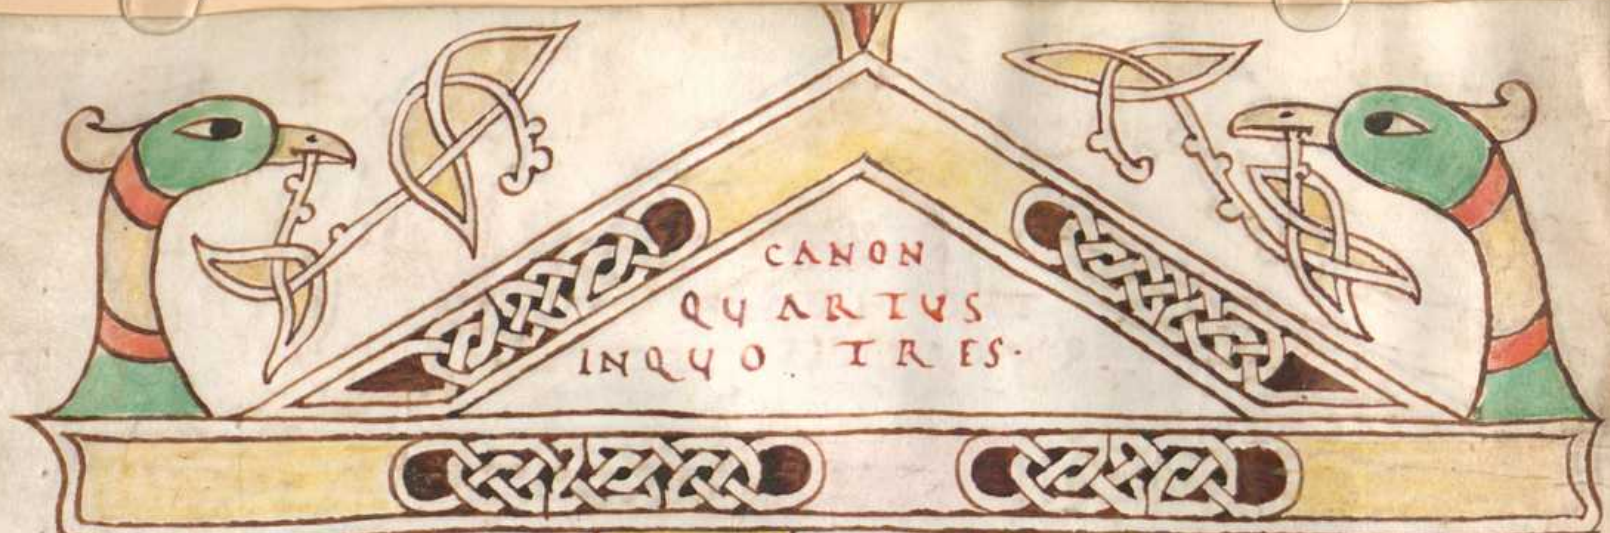 CANON
QUARTUS
INQUO TRES·